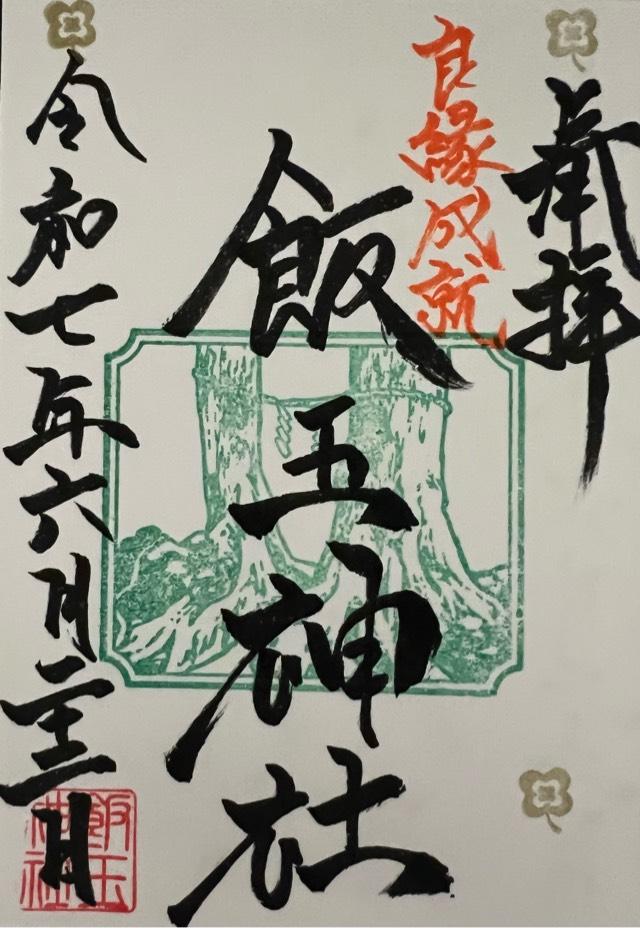 奉拝
良縁成就
飯玉神社
令和七年六月日
飯玉
神社